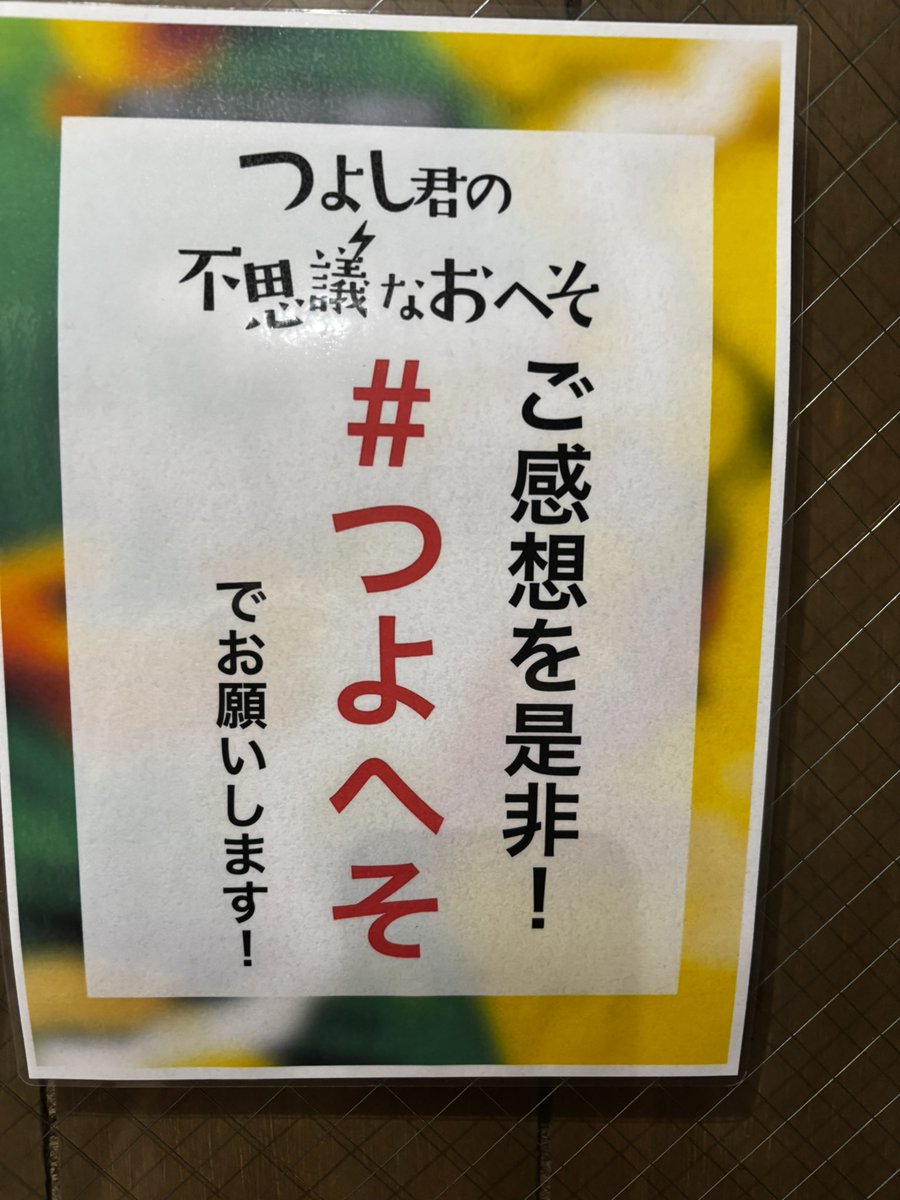 つよし君の
不思議なおへそ
ご感想を是非！
#つよへそ
でお願いします！